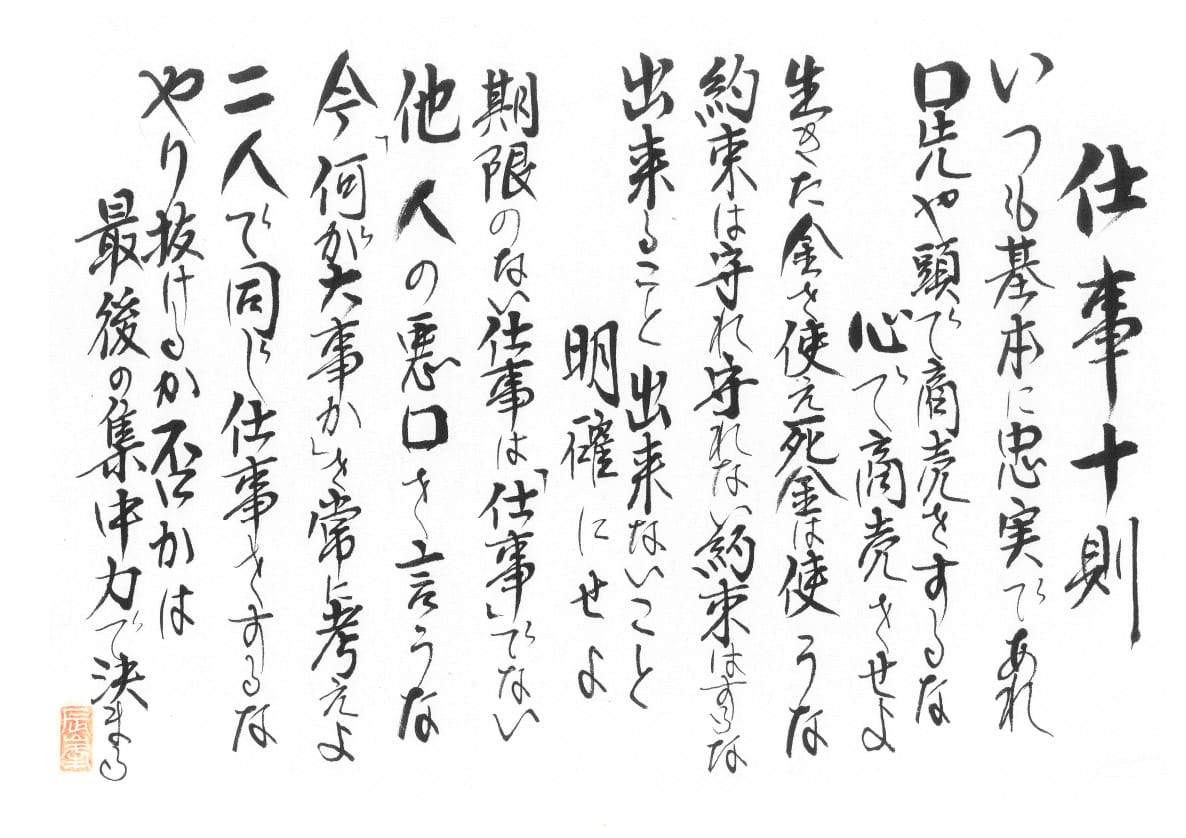 仕事十則
いつも基本に忠実であれ
口先や頭で商売をするな
心で商売をせよ
生きた金を使え死金は使うな
約束は守れ守れない約束はするな
出来ること出来ないこと
明確にせよ
期限のない仕事は「仕事」でない
他人の悪口を言うな
今「何が大事か」を常に考えよ
二人で同じ仕事をするな
やり抜けるか否かは
最後の集中力で決まる